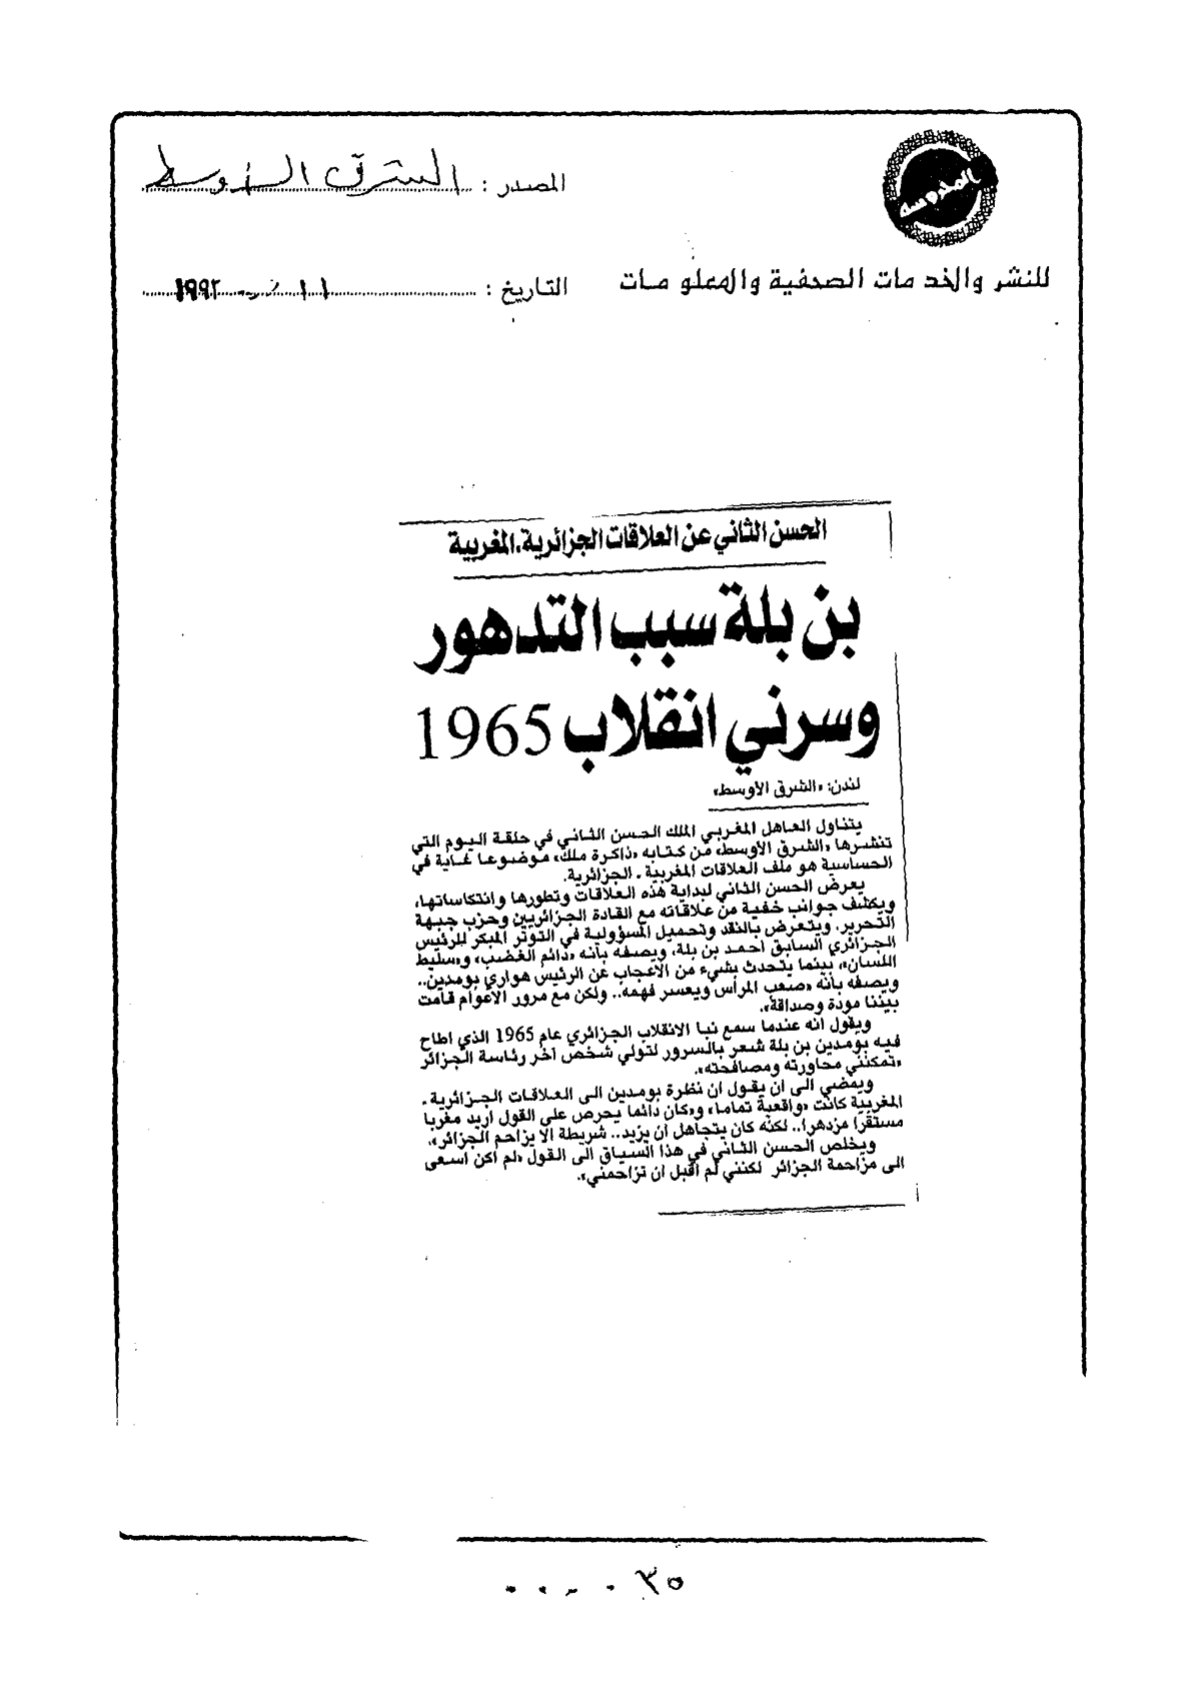 المصدر : الشرق الأوسط
المحروسة
للنشر والخدمات الصحفية والمعلومات
التاريخ : ١١ ١٩٩٢
الحسن الثاني عن العلاقات الجزائرية.المغربية
بن بلة سبب التدهور
وسرني انقلاب 1965
لندن: «الشرق الأوسط»
يتناول العاهل المغربي الملك الحسن الثاني في حلقة اليوم التي
تنشرها «الشرق الأوسط» من كتابه «ذاكرة ملك» موضوعا غاية في
الحساسية هو ملف العلاقات المغربية ـ الجزائرية.
يعرض الحسن الثاني لبداية هذه العلاقات وتطورها وانتكاساتها،
ويكشف جوانب خفية من علاقاته مع القادة الجزائريين وحزب جبهة
التحرير. ويتعرض بالنقد وتحميل المسؤولية في التوتر المبكر للرئيس
الجزائري السابق احمد بن بلة، ويصفه بأنه «دائم الغضب» و«سليط
اللسان»، بينما يتحدث بشيء من الأعجاب عن الرئيس هواري بومدين..
ويصفه بأنه «صعب المرأس ويعسر فهمه.. ولكن مع مرور الأعوام قامت
بيننا مودة وصداقة».
ويقول انه عندما سمع نبا الانقلاب الجزائري عام 1965 الذي اطاح
فيه بومدين بن بلة شعر بالسرور لتولي شخص آخر رئاسة الجزائر
«تمكنني محاورته ومصافحته».
ويمضي الى ان يقول ان نظرة بومدين الى العلاقات الجزائرية ـ
المغربية كانت «واقعية تماما» و«كان دائما يحرص على القول اريد مغربا
مستقرا مزدهرا.. لكنه كان يتجاهل ان يزيد.. شريطة الا يزاحم الجزائر».
ويخلص الحسن الثاني في هذا السياق الى القول «لم اكن اسعى
الى مزاحمة الجزائر لكنني لم اقبل ان تزاحمني».
٣٥